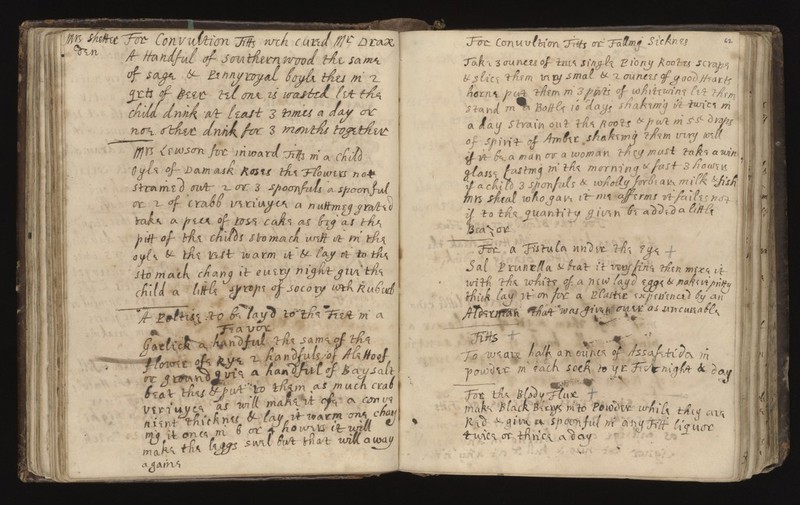 Mrs Shotter For Convultion Fitts wch cured Mr Drax
den A Handful of Southernwood the same
of sage & Pinnyroyal boyle thes in 2
qrts of Beer til one is wasted let the
child drink at least 3 times a day or
noe other drink for 3 months together
Mrs Lewson for inward Fitts in a child
Oyle of Damask Roses the Flowers not
strained out 2 or 3 spoonfuls a spoonful
or 2 of crabb veriuyce a nuttmeg grated
take a pece of rose cake as big as the
pitt of the childs stomach wett it in the
oyle & the rest warm it & lay it to the
stomach chang it euery night giue the
child a little syrope of socory wth Rubarb
A Poltise to be layd to the Feet in a
Feavor
Garlick a handful the same of the
flower of Rye 2 handfuls of Ale Hoof
or ground Ivie a handful of Baysalt
beat thes & put to them as much crab
veriuyce as will make it of a conve
nient thicknes & lay it warm one chan
ing it once in 6 or 4 howers it will
make the leggs swel but that will away
againe
For Convultion Fitts or Falling Sicknes
Take 3 ounces of true single Piony Rootes scrape
& slice them very smal & 2 ounces of good Harts
horne put them in 3 pints of whitewine let them
stand in a Bottle 10 days shakeing it twice in
a day Strain out the Roots & put in 55 drops
of spirit of Amber shakeing them very well
if it be a man or a woman they must take a wine
glasse fasting in the morning & fast 3 howers
if a child 3 sponfuls & wholly forbeare milk & fish
Mrs Sheal who gave it me affirms it failes not
if to the quantity given be added a little
Beazor
For a Fistula under the Eye
Sal Prunella & beat it very fine then mixe it
with the white of a new layd egge & make it pritty
thick lay it on for a Plaster experienced by an
Alderman that was given over as uncureable
Fitts
To weare half an ounce of Assafetida in
powder in each sock to yr Feet night & day
For the Blody Flux
make Black Berys into Powder while they are
Red & give a spoonful in any Fitt liquor
twice or thrice a day